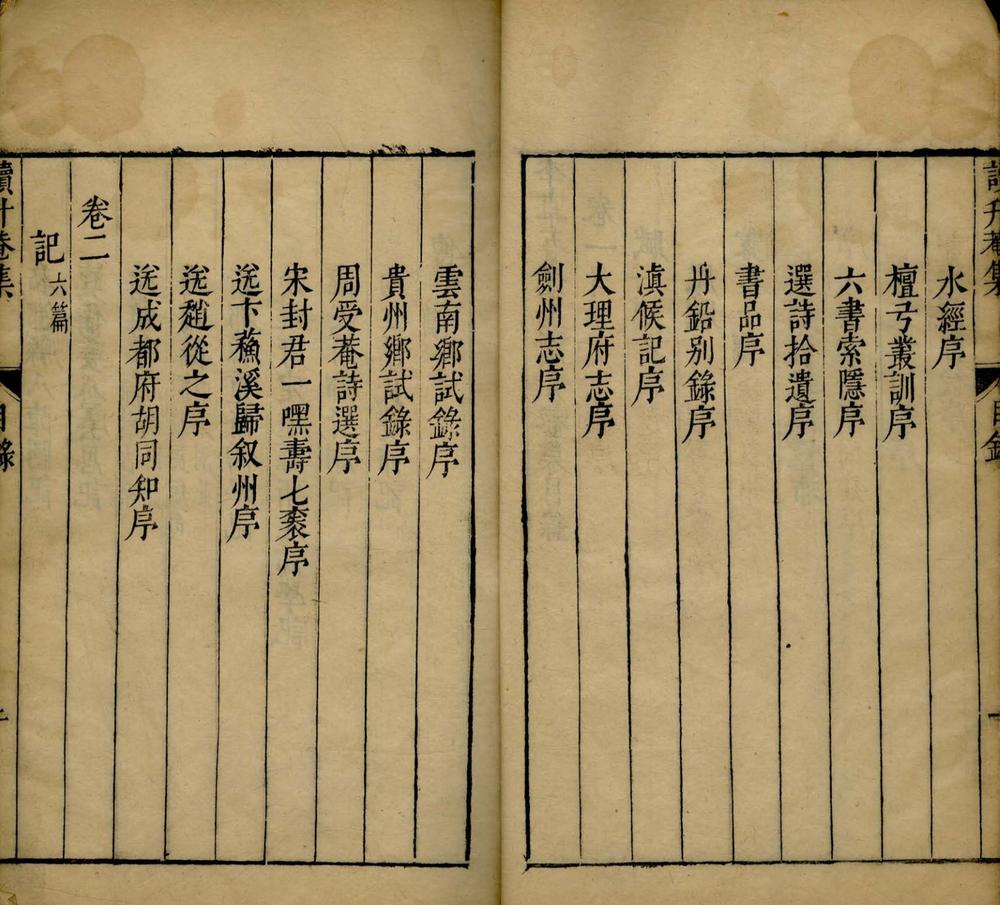 水經序
檀弓叢訓序
六書索隱序
選詩拾遺序
書品序
丹鉛别錄序
滇候記序
大理府志序
劍州志序
雲南鄉試錄序
貴州鄉試錄序
周受菴詩選序
宋封君一嘿壽七袠序
送卞蘓溪歸叙州序
送趙從之序
送成都府胡同知序
卷二
記六篇